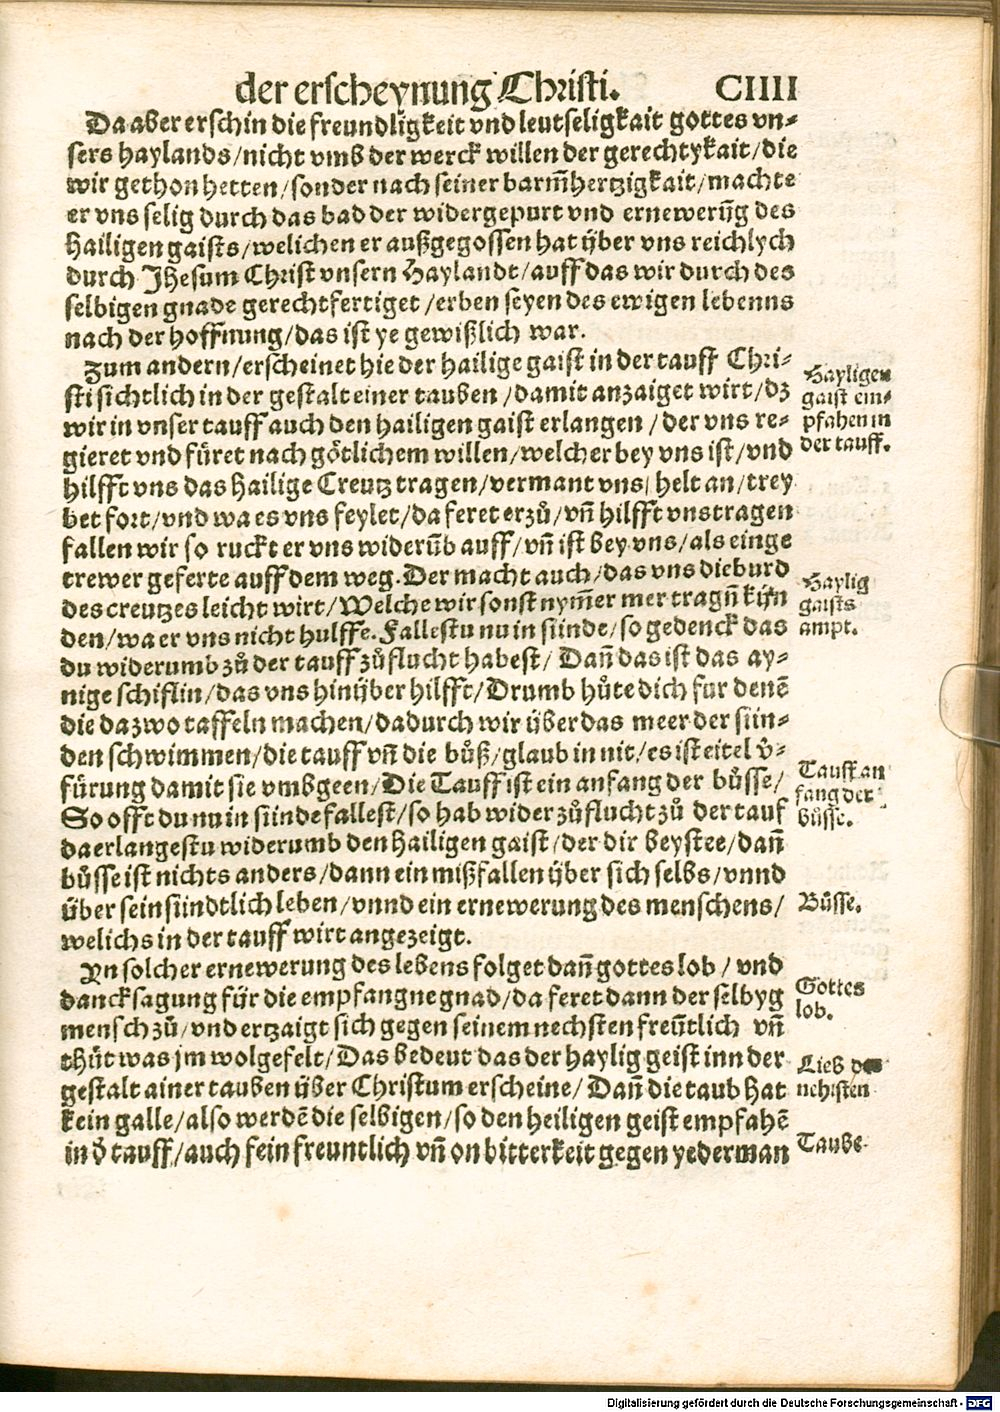 der erscheynung Christi. CIIII
Da aber erschin die freundligkeit vnd leutseligkait gottes vn-
sers haylands/nicht vmb der werck willen der gerechtykait/die
wir gethon hetten/sonder nach seiner barm̃hertzigkait/machte
er vns selig durch das bad der widergepurt vnd ernewerũg des
hailigen gaists/welichen er außgegossen hat über vns reichlych
durch Jhesum Christ vnsern Haylandt/auff das wir durch des
selbigen gnade gerechtfertiget/erben seyen des ewigen lebenns
nach der hoffnung/das ist ye gewißlich war.
Zum andern/erscheinet hie der hailige gaist in der tauff Chri-
sti sichtlich in der gestalt einer tauben/damit anzaiget wirt/dz
wir in vnser tauff auch den hailigen gaist erlangen/der vns re-
gieret vnd füret nach götlichem willen/welcher bey vns ist/vnd
hilfft vns das hailige Creutz tragen/vermant vns/helt an/trey
bet fort/vnd wa es vns feylet/da feret er zů/vñ hilfft vns tragen
fallen wir so ruckt er vns widerũb auff/vñ ist bey vns/als einge
trewer geferte auff dem weg. Der macht auch/das vns die burd
des creutzes leicht wirt/Welche wir sonst nym̃er mer tragñ kün
den/wa er vns nicht hulffe. Fallestu nu in sünde/so gedenck das
du widerumb zů der tauff zůflucht habest/Dañ das ist das ay-
nige schiflin/das vns hinüber hilfft/Drumb hůte dich fur denẽ
die da zwo taffeln machen/dadurch wir über das meer der sün-
den schwimmen/die tauff vñ die bůß/glaub in nit/es ist eitel v̓-
fürung damit sie vmbgeen/Die Tauff ist ein anfang der bůsse/
So offt du nu in sünde fallest/so hab wider zůflucht zů der tauf
da erlangestu widerumb den hailigen gaist/der dir beystee/dañ
bůsse ist nichts anders/dann ein mißfallen über sich selbs/vnnd
über sein sündtlich leben/vnnd ein ernewerung des menschens/
welichs in der tauff wirt angezeigt.
Yn solcher ernewerung des lebens folget dañ gottes lob/vnd
dancksagung für die empfangne gnad/da feret dann der selbyg
mensch zů/vnd ertzaigt sich gegen seinem nechsten freũtlich vñ
thůt was jm wolgefelt/Das bedeut das der haylig geist inn der
gestalt ainer tauben über Christum erscheine/Dañ die taub hat
kein galle/also werdẽ die selbigen/so den heiligen geist empfahẽ
in d̓ tauff/auch fein freuntlich vñ on bitterkeit gegen yederman
Hayligen
gaist em-
pfahen in
der tauff.
Haylig
gaists
ampt.
Tauff an
fang der
bůsse.
Bůsse.
Gottes
lob.
Lieb des
nehisten
Taube.
Digitalisierung gefördert durch die Deutsche Forschungsgemeinschaft - DFG